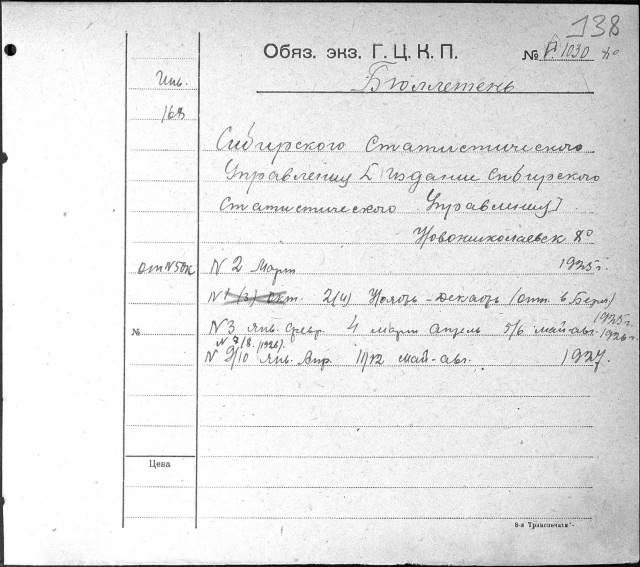 138
Обяз. экз. Г. Ц. К. П. № 1030 8º
Бюллетень
Инв.
168
Сибирского Статистического
Управления [Издание Сибирского
Статистического Управления]
Новониколаевск 8º
N 2 Март 1925 г.
N 1 (3) Окт. 2(4) Ноябрь - декабрь (отп. в Берл) 1925 г.
N 3 янв. февр. 4 март апрель 5/6 май-авг. 1926 г.
№
N 7/8. 1926).
N 9/10 янв. Апр. 11/12 май-авг. 1927.
Цева
8-я Транспечати